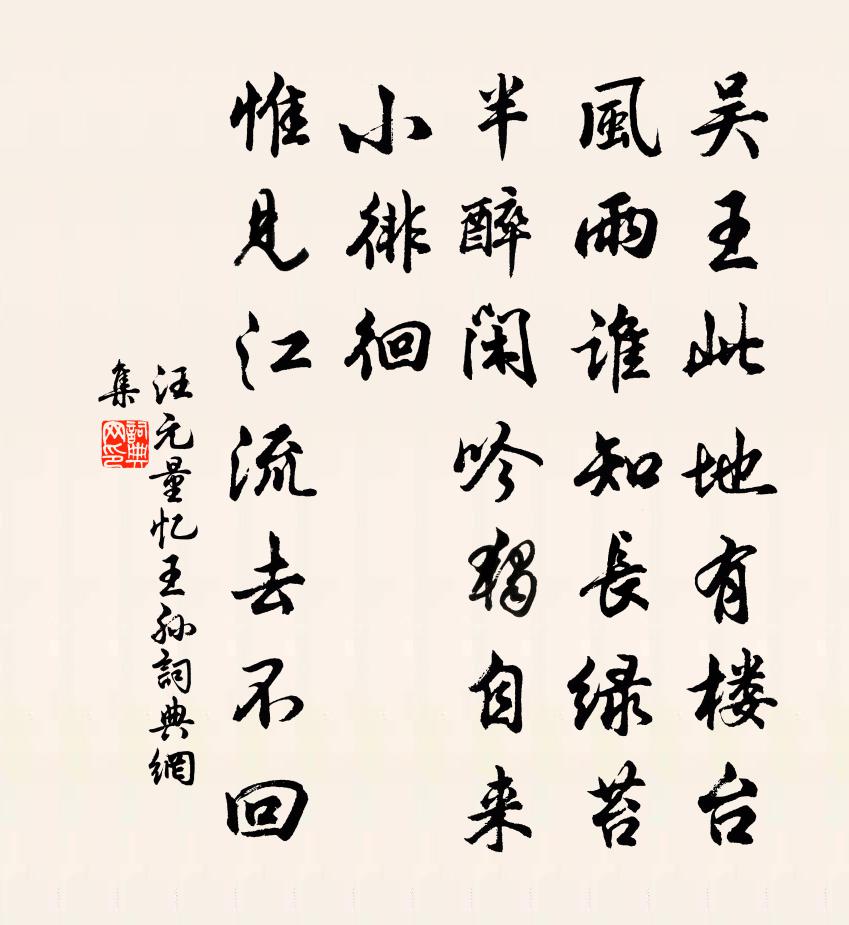 吴王此地有楼台
風雨谁知長绿苔
半醉閑吟獨自来
小徘徊
惟見江流去不回
汪元量忆王孙詞典網
集
詞典
网印